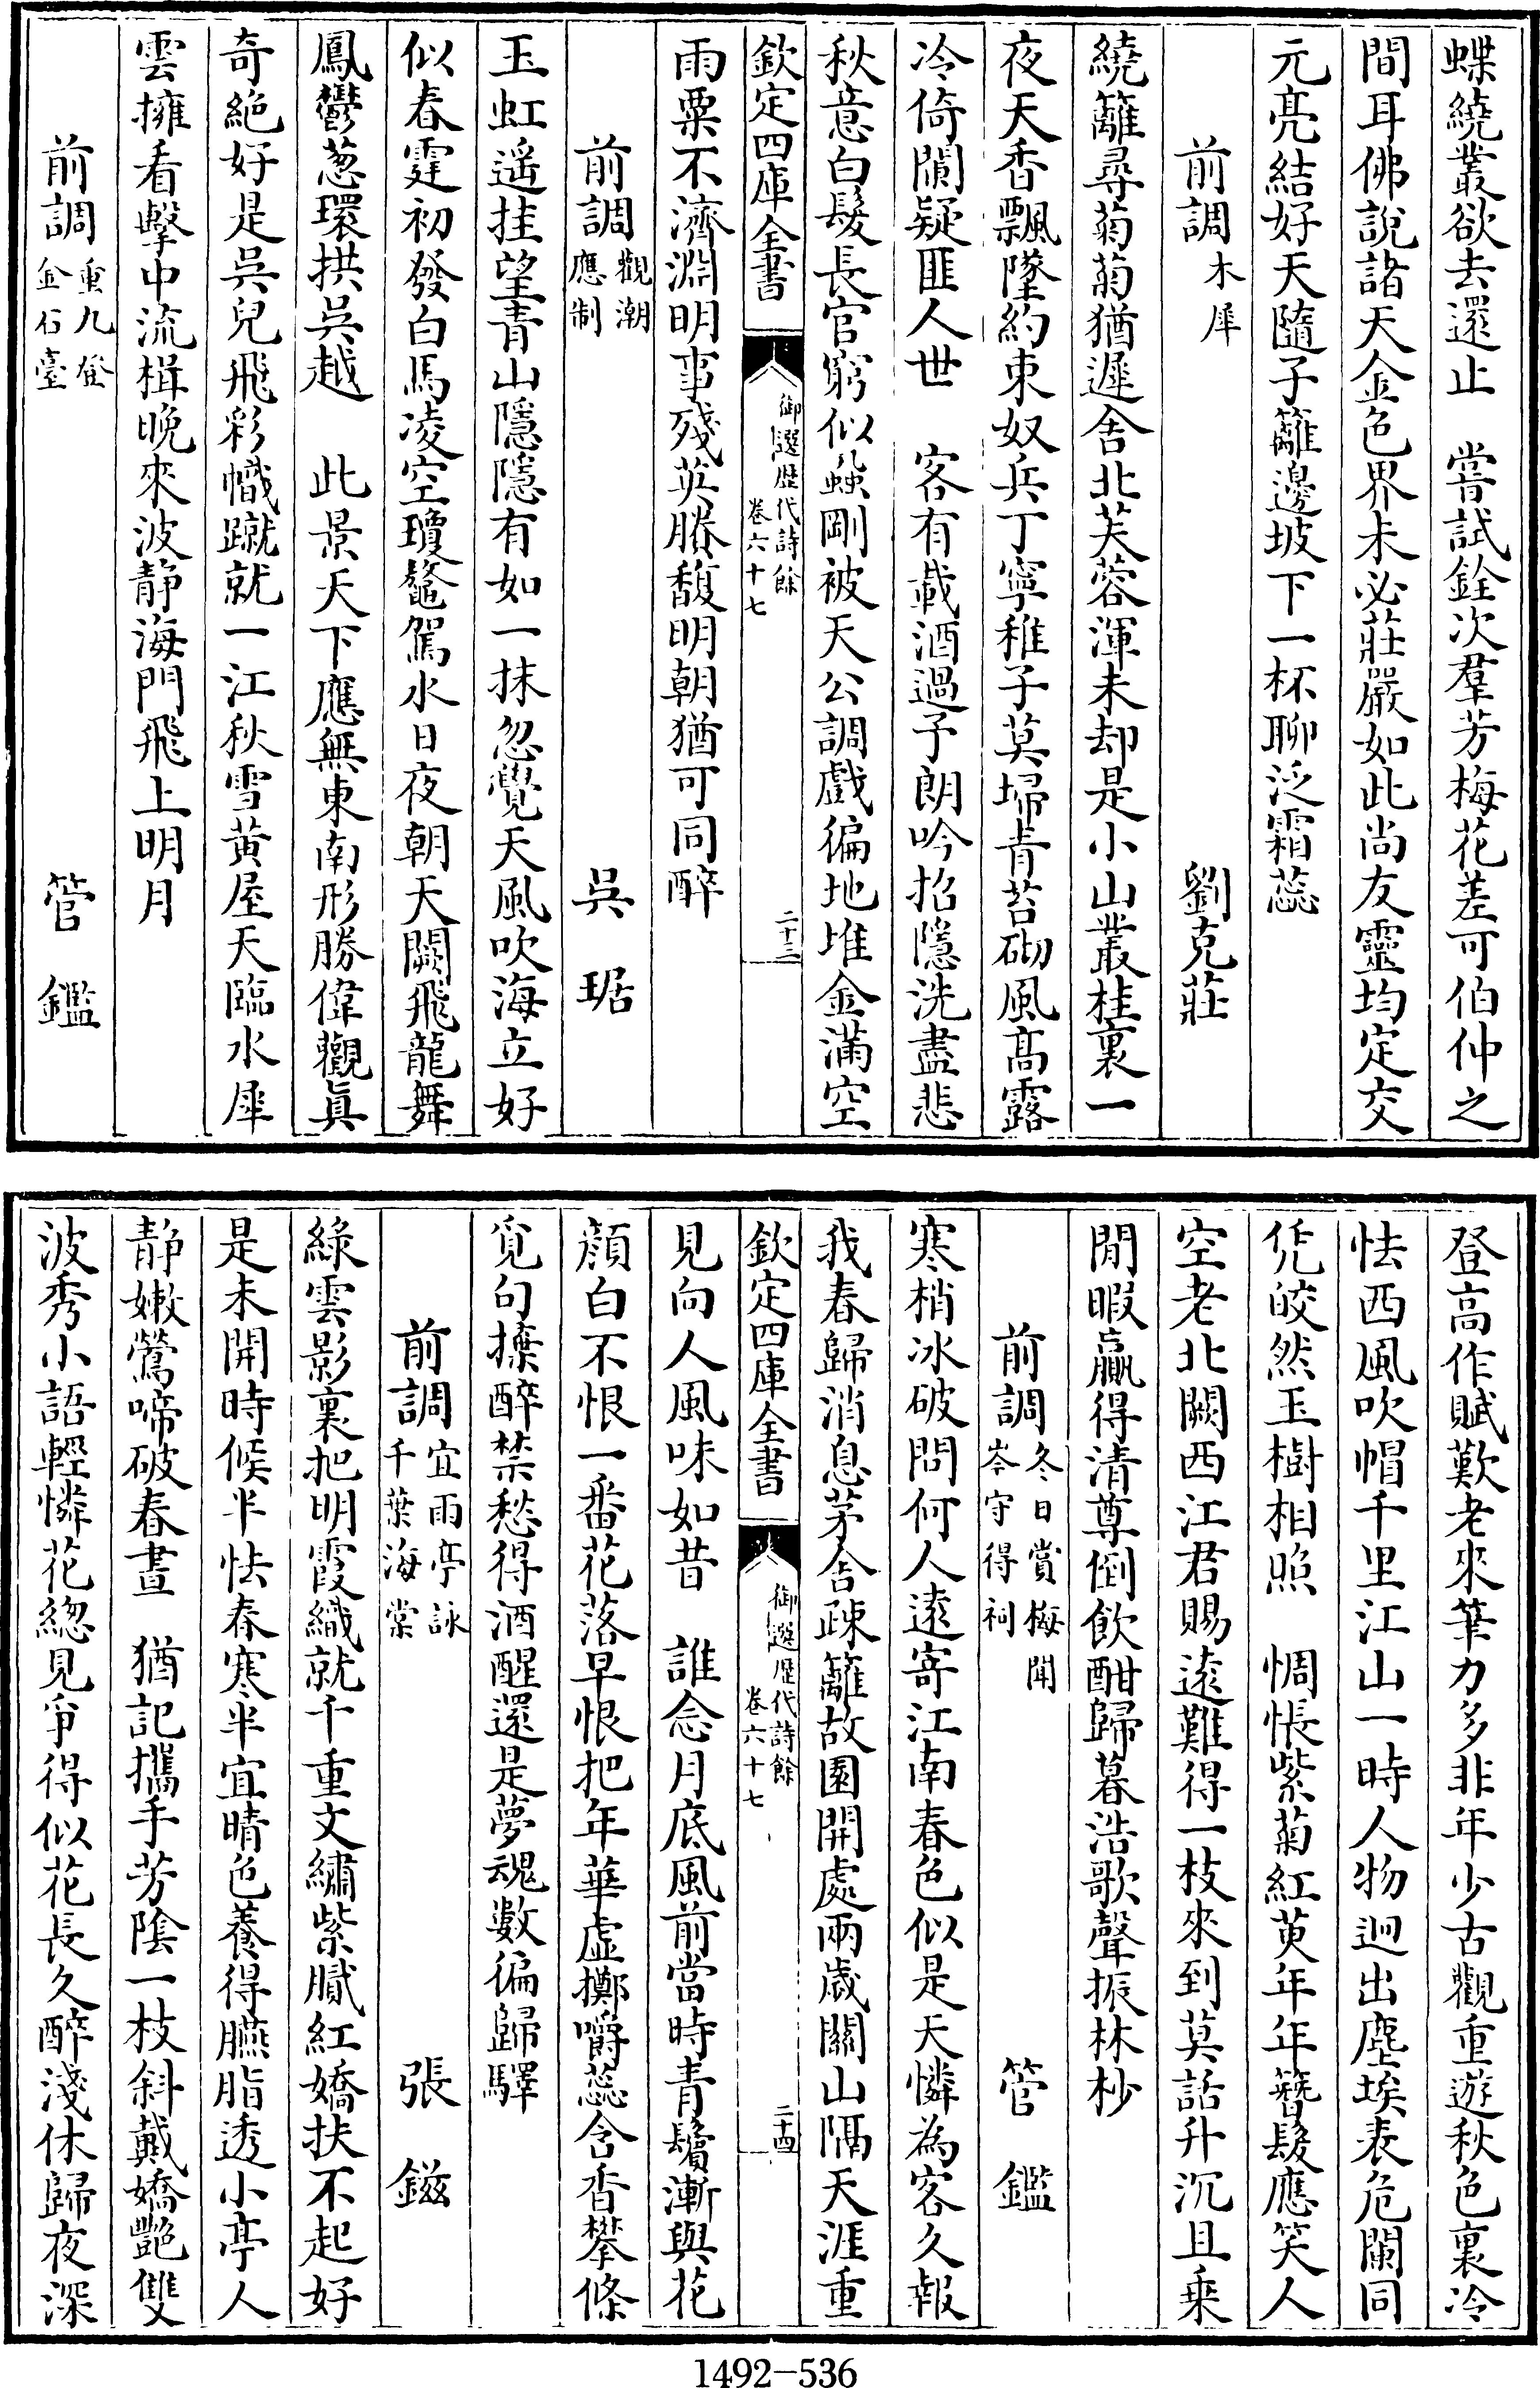 蝶繞叢欲去還止　嘗試銓次羣芳梅花差可伯仲之
間耳佛說諸天金色界未必莊嚴如此尚友靈均定交
元亮結好天隨子籬邊坡下一杯聊泛霜蕊
前調木犀　劉克莊
繞籬尋菊菊猶遲舍北芙蓉渾未却是小山叢桂裏一
夜天香飄墜約束奴兵丁寧稚子莫埽青苔砌風髙露
冷倚闌疑匪人世　客有載酒過予朗吟招隱洗盡悲
秋意白髮長官窮似蝨剛被天公調戲徧地堆金滿空
欽定四庫全書　御選歴代詩餘卷六十七　二十三
雨粟不濟淵明事殘英賸馥明朝猶可同醉
前調觀潮應制　吳琚
玉虹遥挂望青山隱隱有如一抹忽覺天風吹海立好
似春霆初發白馬凌空瓊鼇駕水日夜朝天闕飛龍舞
鳳鬱葱環拱吳越　此景天下應無東南形勝偉觀眞
奇絕好是吳兒飛彩幟蹴就一江秋雪黄屋天臨水犀
雲擁看擊中流楫晚來波靜海門飛上明月
前調重九登金石臺　管鑑
登高作賦歎老來筆力多非年少古觀重遊秋色裏冷
怯西風吹帽千里江山一時人物迥出塵埃表危闌同
凭皎然玉樹相照　惆悵紫菊紅萸年年簪髮應笑人
空老北闕西江君賜遠難得一枝來到莫話升沉且乗
閒暇贏得清尊倒飲酣歸暮浩歌聲振林杪
前調冬日賞梅聞岑守得祠　管鑑
寒梢冰破問何人遠寄江南春色似是天憐為客久報
我春歸消息茅舍疎籬故園開處兩歲關山隔天涯重
欽定四庫全書　御選歴代詩餘卷六十七　二十四
見向人風味如昔　誰念月底風前當時青鬢漸與花
顔白不恨一番花落早恨把年華虛擲嚼蕊含香攀條
覓句拚醉禁愁得酒醒還是夢魂數徧歸驛
前調宜雨亭詠千葉海棠　張鎡
綠雲影裏把明霞織就千重文繡紫膩紅嬌扶不起好
是未開時候半怯春寒半宜晴色養得臙脂透小亭人
靜嫩鶯啼破春晝　猶記攜手芳陰一枝斜戴嬌艷雙
波秀小語輕憐花總見爭得似花長久醉淺休歸夜深
1492-536